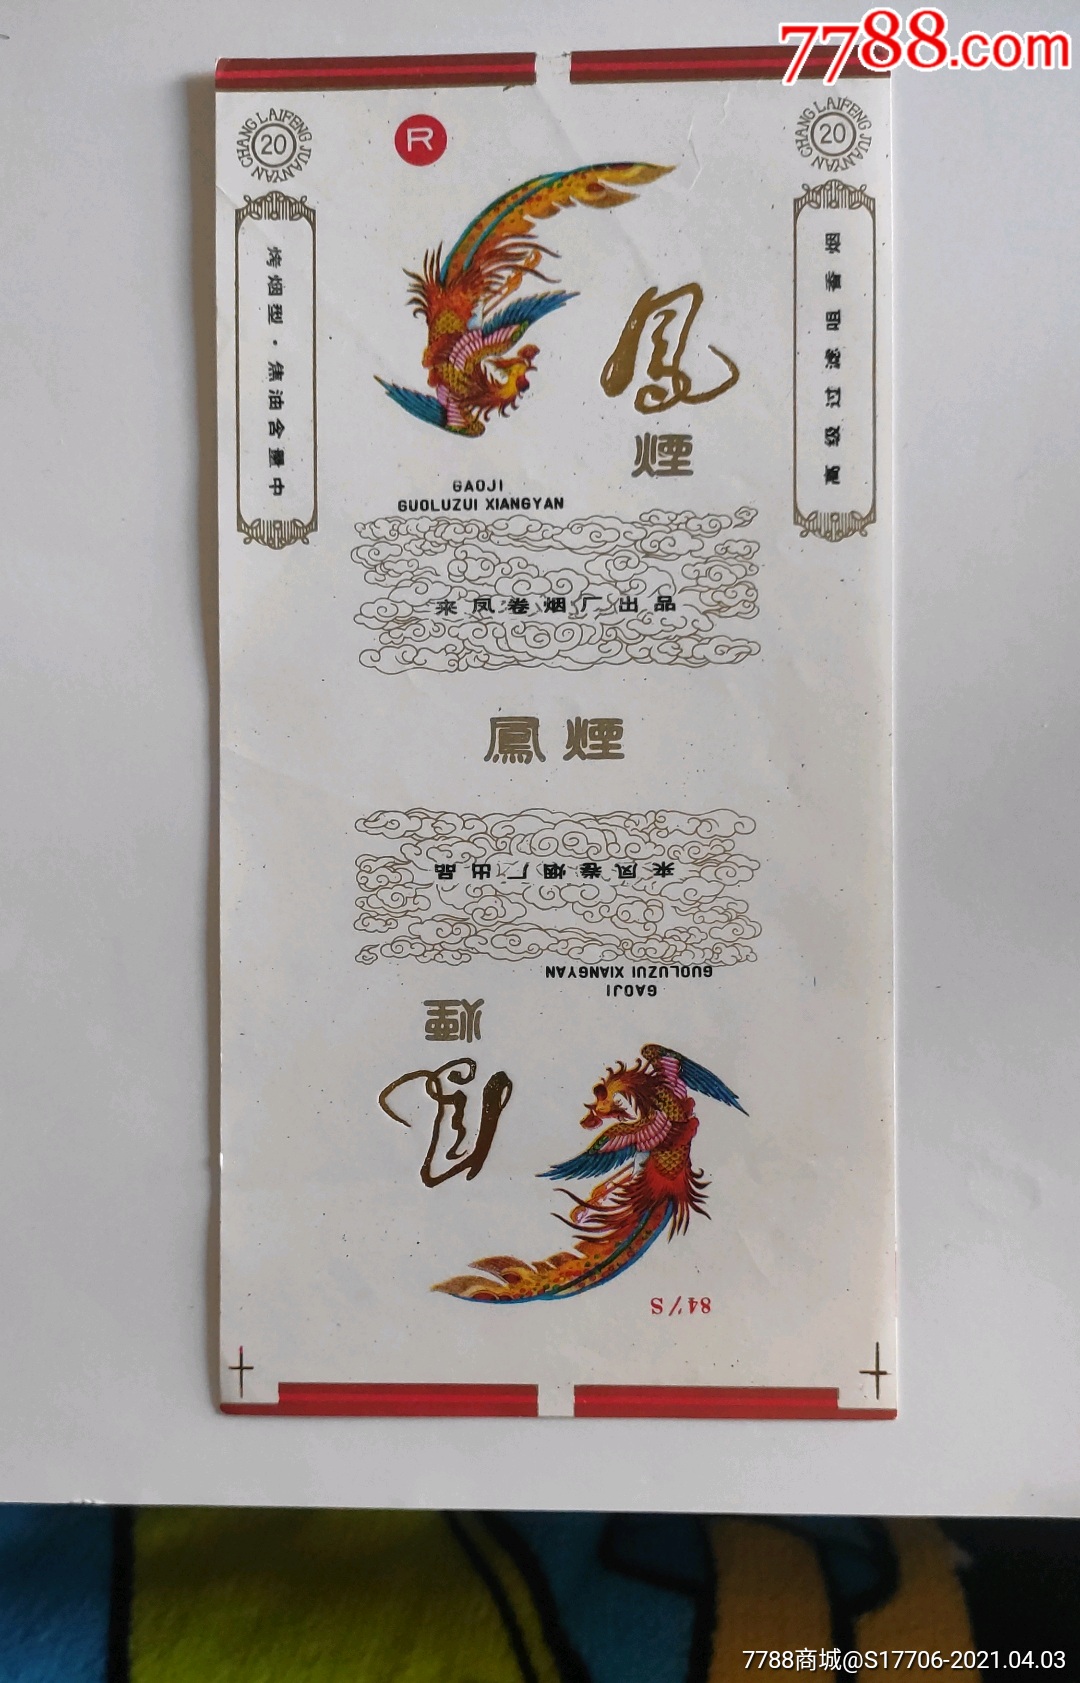 7788.com
CHANG LAIFENG JUANYAN
20
CHANG LAIFENG JUANYAN
20
R
烤烟型·焦油含量中
高级过滤咀香烟
鳳
煙
GAOJI
GUOLUZUI XIANGYAN
来凤卷烟厂出品
鳳煙
来凤卷烟厂出品
GUOLUZUI XIANGYAN
GAOJI
煙
鳳
84'/S
7788商城@S17706-2021.04.03